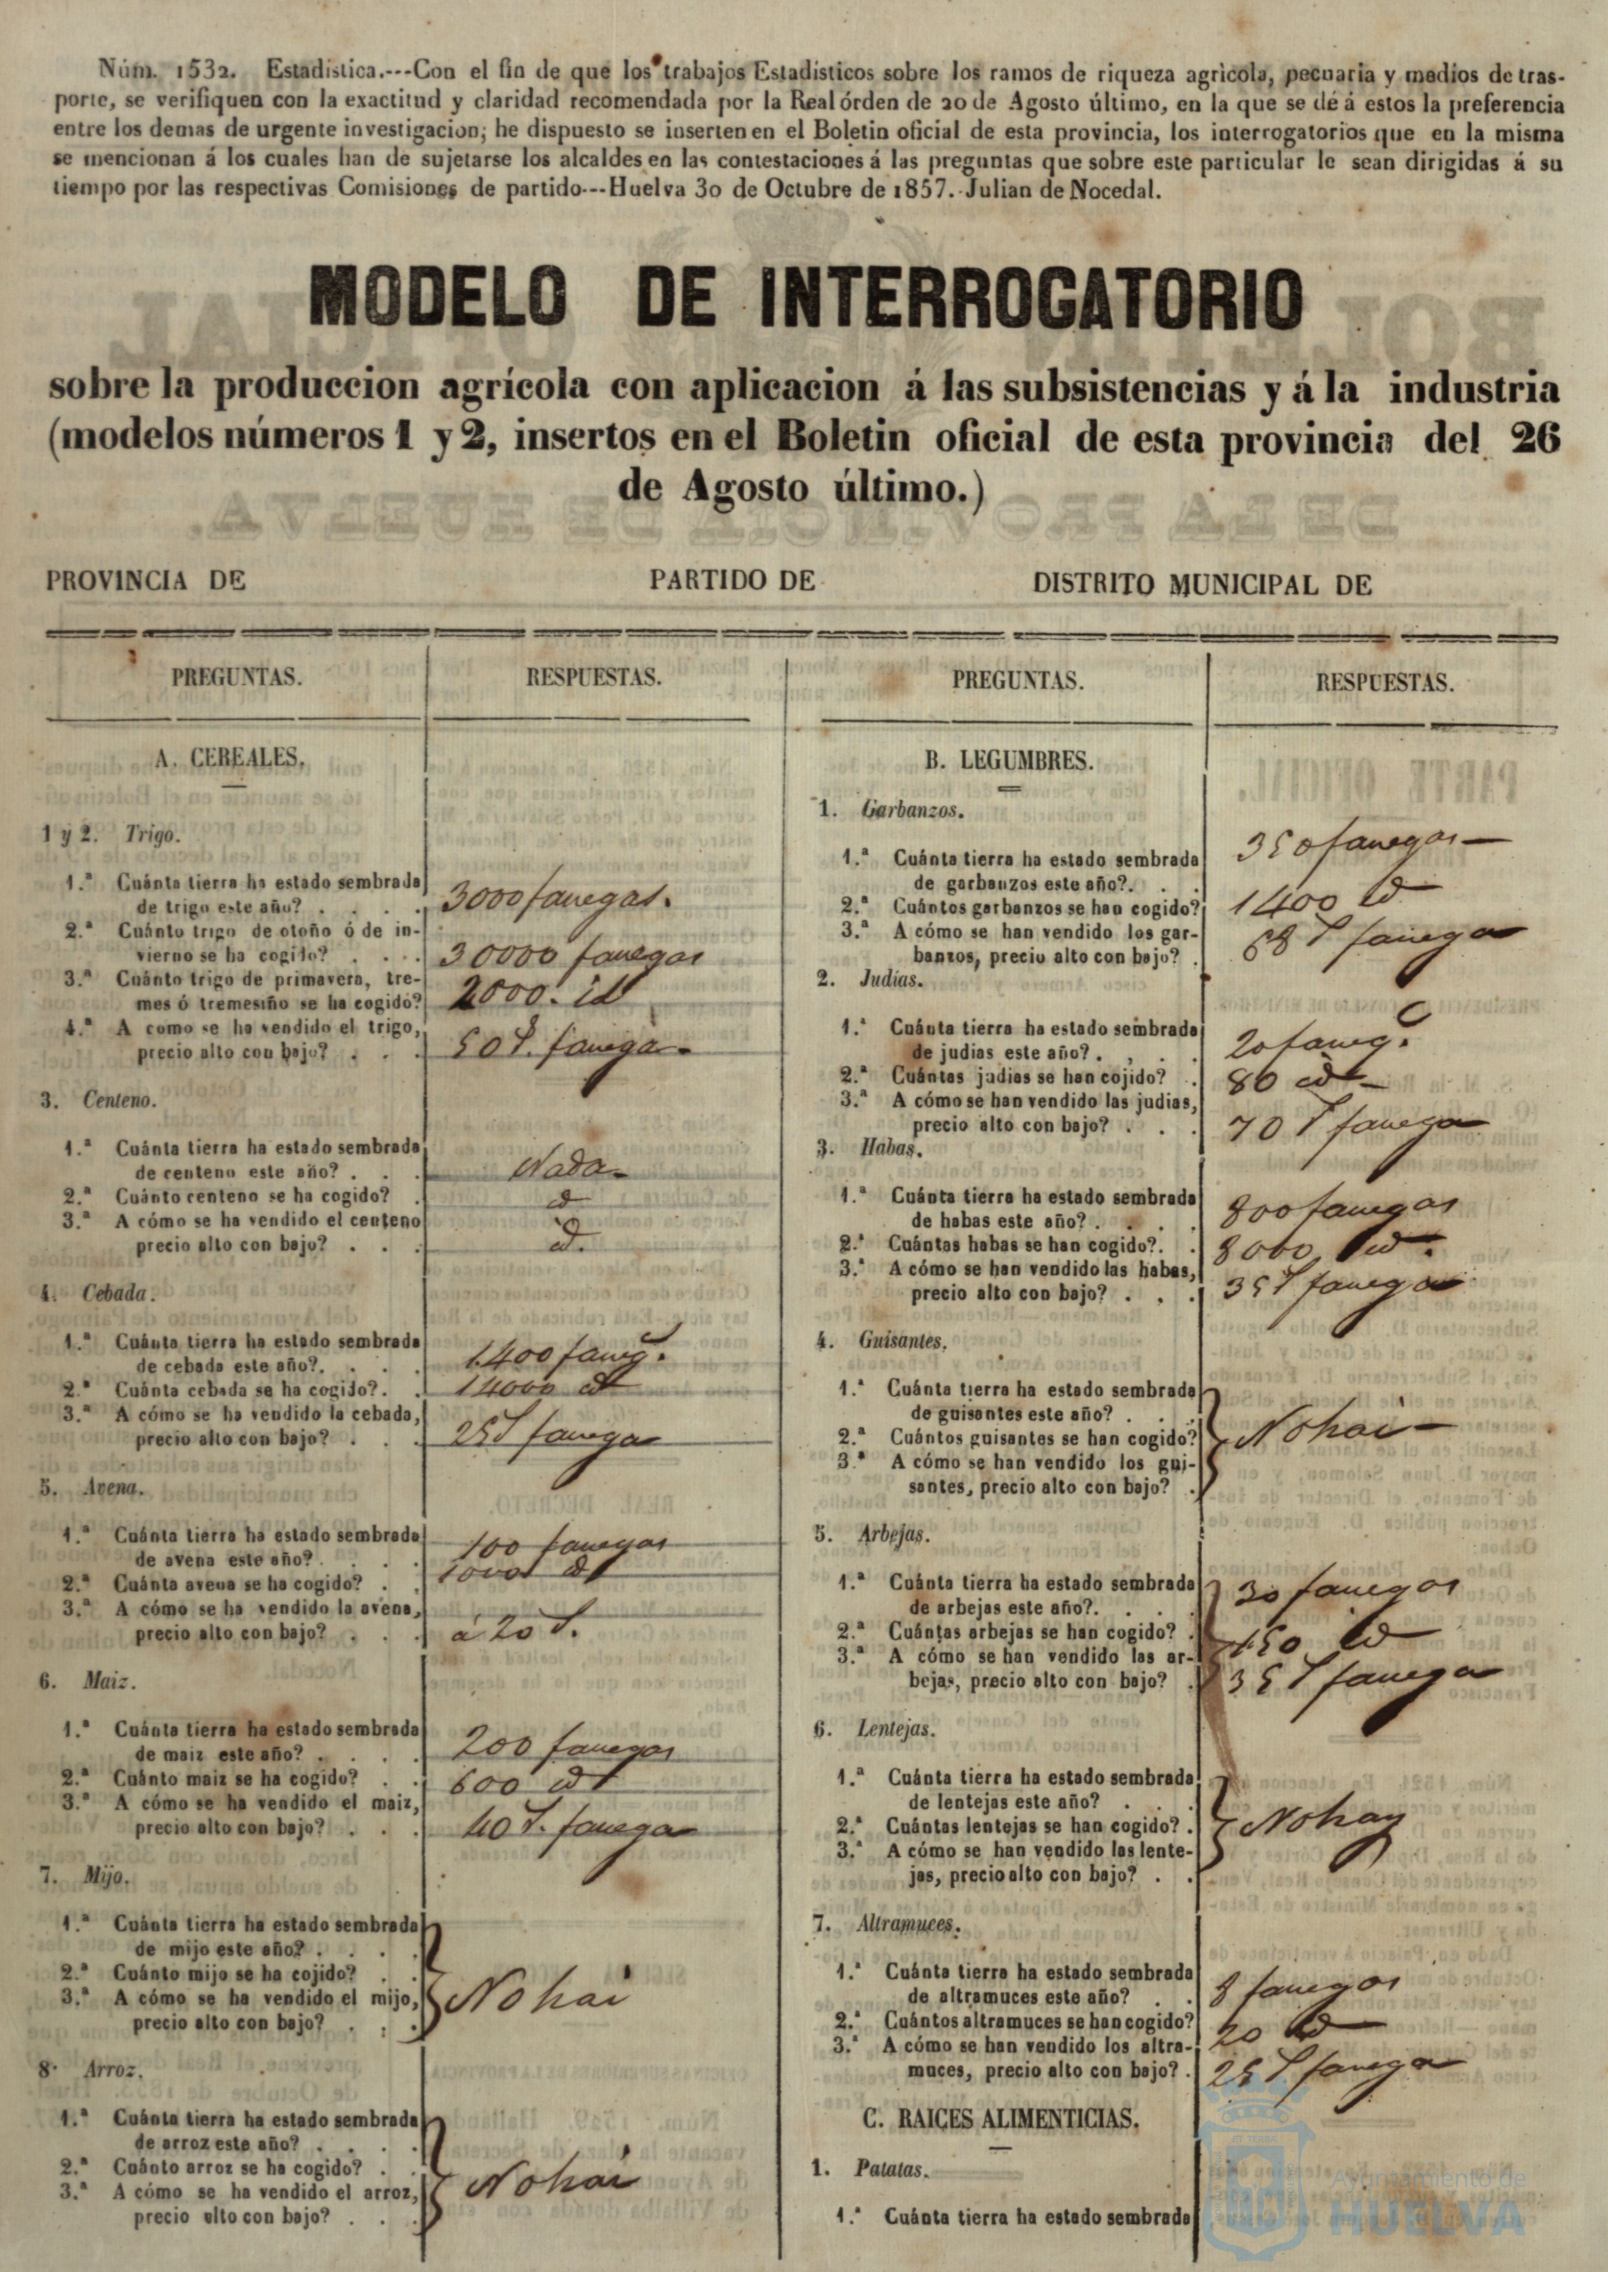 Núm. 1532. Estadistica.---Con el fin de que los trabajos Estadisticos sobre los ramos de riqueza agricola, pecuaria y medios de tras-
porte, se verifiquen con la exactitud y claridad recomendada por la Real órden de 20 de Agosto último, en la que se dé á estos la preferencia
entre los demas de urgente investigacion; he dispuesto se inserten en el Boletin oficial de esta provincia, los interrogatorios que en la misma
se mencionan á los cuales han de sujetarse los alcaldes en las contestaciones á las preguntas que sobre este particular le sean dirigidas á su
tiempo por las respectivas Comisiones de partido---Huelva 30 de Octubre de 1857.-Julian de Nocedal.
MODELO DE INTERROGATORIO
sobre la produccion agrícola con aplicacion á las subsistencias y á la industria
(modelos números 1 y 2, insertos en el Boletin oficial de esta provincia del 26
de Agosto último.)
PROVINCIA DE PARTIDO DE DISTRITO MUNICIPAL DE
PREGUNTAS. RESPUESTAS.
A. CEREALES.
1 y 2. Trigo.
1.ª Cuánta tierra ha estado sembrada
de trigo este año? . . . . 3000 fanegas.
2.ª Cuánto trigo de otoño ó de in-
vierno se ha cogido? . . . . 30000 fanegas
3.ª Cuánto trigo de primavera, tre-
mes ó tremesiño se ha cogido? 2000. id
4.ª A como se ha vendido el trigo,
precio alto con bajo? . . . 50 fanega
3. Centeno.
1.ª Cuánta tierra ha estado sembrada
de centeno este año? . . . Nada
2.ª Cuánto centeno se ha cogido? . id
3.ª A cómo se ha vendido el centeno
precio alto con bajo? . . . id.
4. Cebada.
1.ª Cuánta tierra ha estado sembrada
de cebada este año?. . . . 1400 faneg.
2.ª Cuánta cebada se ha cogido?. . 14000 id
3.ª A cómo se ha vendido la cebada,
precio alto con bajo? . . . 25 fanega
5. Avena.
1.ª Cuánta tierra ha estado sembrada
de avena este año? . . . . 100 fanegas
2.ª Cuánta avena se ha cogido? . . 1000 id
3.ª A cómo se ha vendido la avena,
precio alto con bajo? . . . á 20
6. Maiz.
1.ª Cuánta tierra ha estado sembrada
de maiz este año? . . . . 200 fanegas
2.ª Cuánto maiz se ha cogido? . . 600 id
3.ª A cómo se ha vendido el maiz,
precio alto con bajo? . . . 40 fanega
7. Mijo.
1.ª Cuánta tierra ha estado sembrada
de mijo este año? . . . .
2.ª Cuánto mijo se ha cojido? . .
3.ª A cómo se ha vendido el mijo, No hai
precio alto con bajo? . . .
8. Arroz.
1.ª Cuánta tierra ha estado sembrada
de arroz este año? . . . .
2.ª Cuánto arroz se ha cogido? . . No hai
3.ª A cómo se ha vendido el arroz,
precio alto con bajo? . . .
PREGUNTAS. RESPUESTAS.
B. LEGUMBRES.
1. Garbanzos.
1.ª Cuánta tierra ha estado sembrada 350 fanegas
de garbanzos este año?. . .
2.ª Cuántos garbanzos se han cogido? 1400 id
3.ª A cómo se han vendido los gar-
banzos, precio alto con bajo? . 68 fanega
2. Judías.
1.ª Cuánta tierra ha estado sembrada
de judias este año? . . . . 20 faneg.
2.ª Cuántas judias se han cojido? . 80 id
3.ª A cómo se han vendido las judias,
precio alto con bajo? . . . 70 fanega
3. Habas.
1.ª Cuánta tierra ha estado sembrada
de habas este año? . . . . 800 fanegas
2.ª Cuántas habas se han cogido?. . 8000 id.
3.ª A cómo se han vendido las habas,
precio alto con bajo? . . . 35 fanega
4. Guisantes.
1.ª Cuánta tierra ha estado sembrada
de guisantes este año? . . .
2.ª Cuántos guisantes se han cogido? No hai
3.ª A cómo se han vendido los gui-
santes, precio alto con bajo? .
5. Arbejas.
1.ª Cuánta tierra ha estado sembrada 30 fanegas
de arbejas este año?. . . .
2.ª Cuántas arbejas se han cogido? . 150 id
3.ª A cómo se han vendido las ar-
bejas, precio alto con bajo? . 35 fanega
6. Lentejas.
1.ª Cuánta tierra ha estado sembrada
de lentejas este año? . . .
2.ª Cuántas lentejas se han cogido? . No hay
3.ª A cómo se han vendido las lente-
jas, precio alto con bajo? . .
7. Altramuces.
1.ª Cuánta tierra ha estado sembrada
de altramuces este año? . . 8 fanegas
2.ª Cuántos altramuces se han cogido? 20 id
3.ª A cómo se han vendido los altra-
muces, precio alto con bajo? . 25 fanega
C. RAICES ALIMENTICIAS.
1. Patatas.
1.ª Cuánta tierra ha estado sembrada
Ayuntamiento de
HUELVA